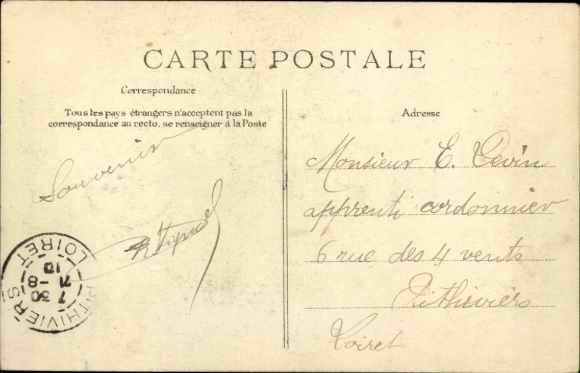 CARTE POSTALE
Correspondance
Tous les pays étrangers n'acceptent pas la
correspondance au recto, se renseigner à la Poste
Souvenir
Adresse
Monsieur E. Devin
apprenti cordonnier
6 rue des 4 vents
Pithiviers
Loiret
PITHIVIERS
7 30
LOIRET